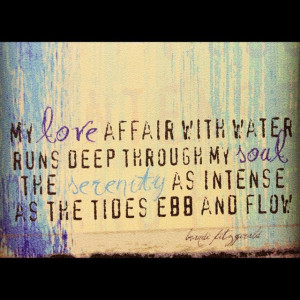 MY love AFFAIR WITH WATER
RUNS DEEP THROUGH MY soul
THE serenity AS INTENSE
AS THE TIDES EBB AND FLOW
fitzgerald